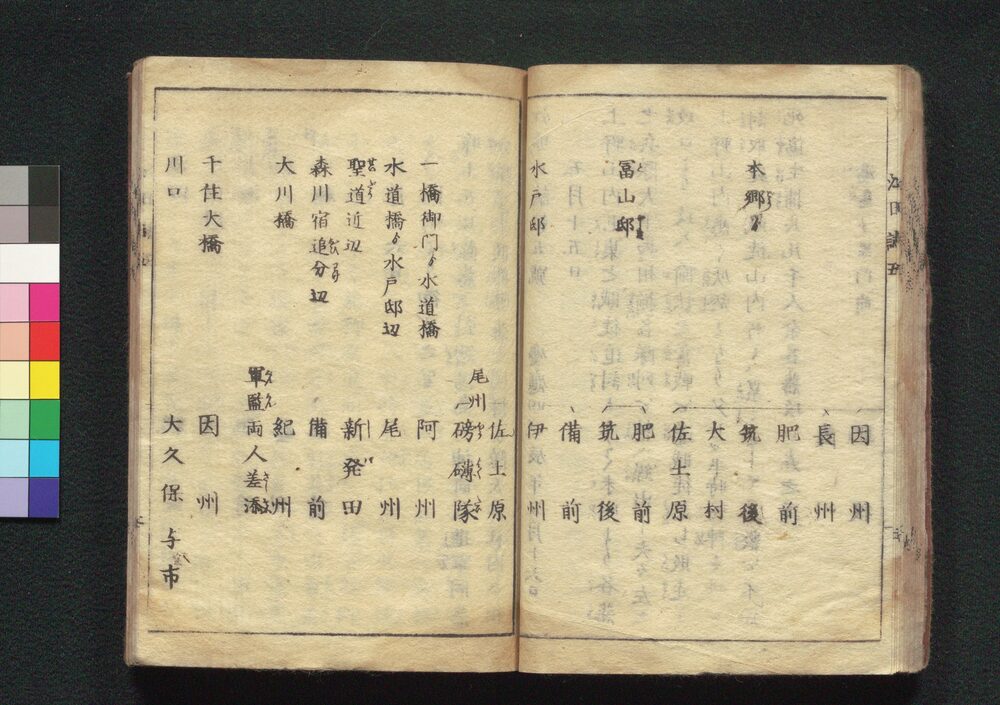 因州
長州
肥前
本郷ゟ
筑後
大村
佐土原
冨山邸
肥前
筑後
備前
水戸邸
伊州
佐土原
尾州
磅礴隊
一橋御門ゟ水道橋
阿州
水道橋ゟ水戸邸辺
尾州
聖道近辺
新発田
森川宿追分辺
備前
大川橋
紀州
軍監両人差添
千住大橋
因州
川口
大久保与市